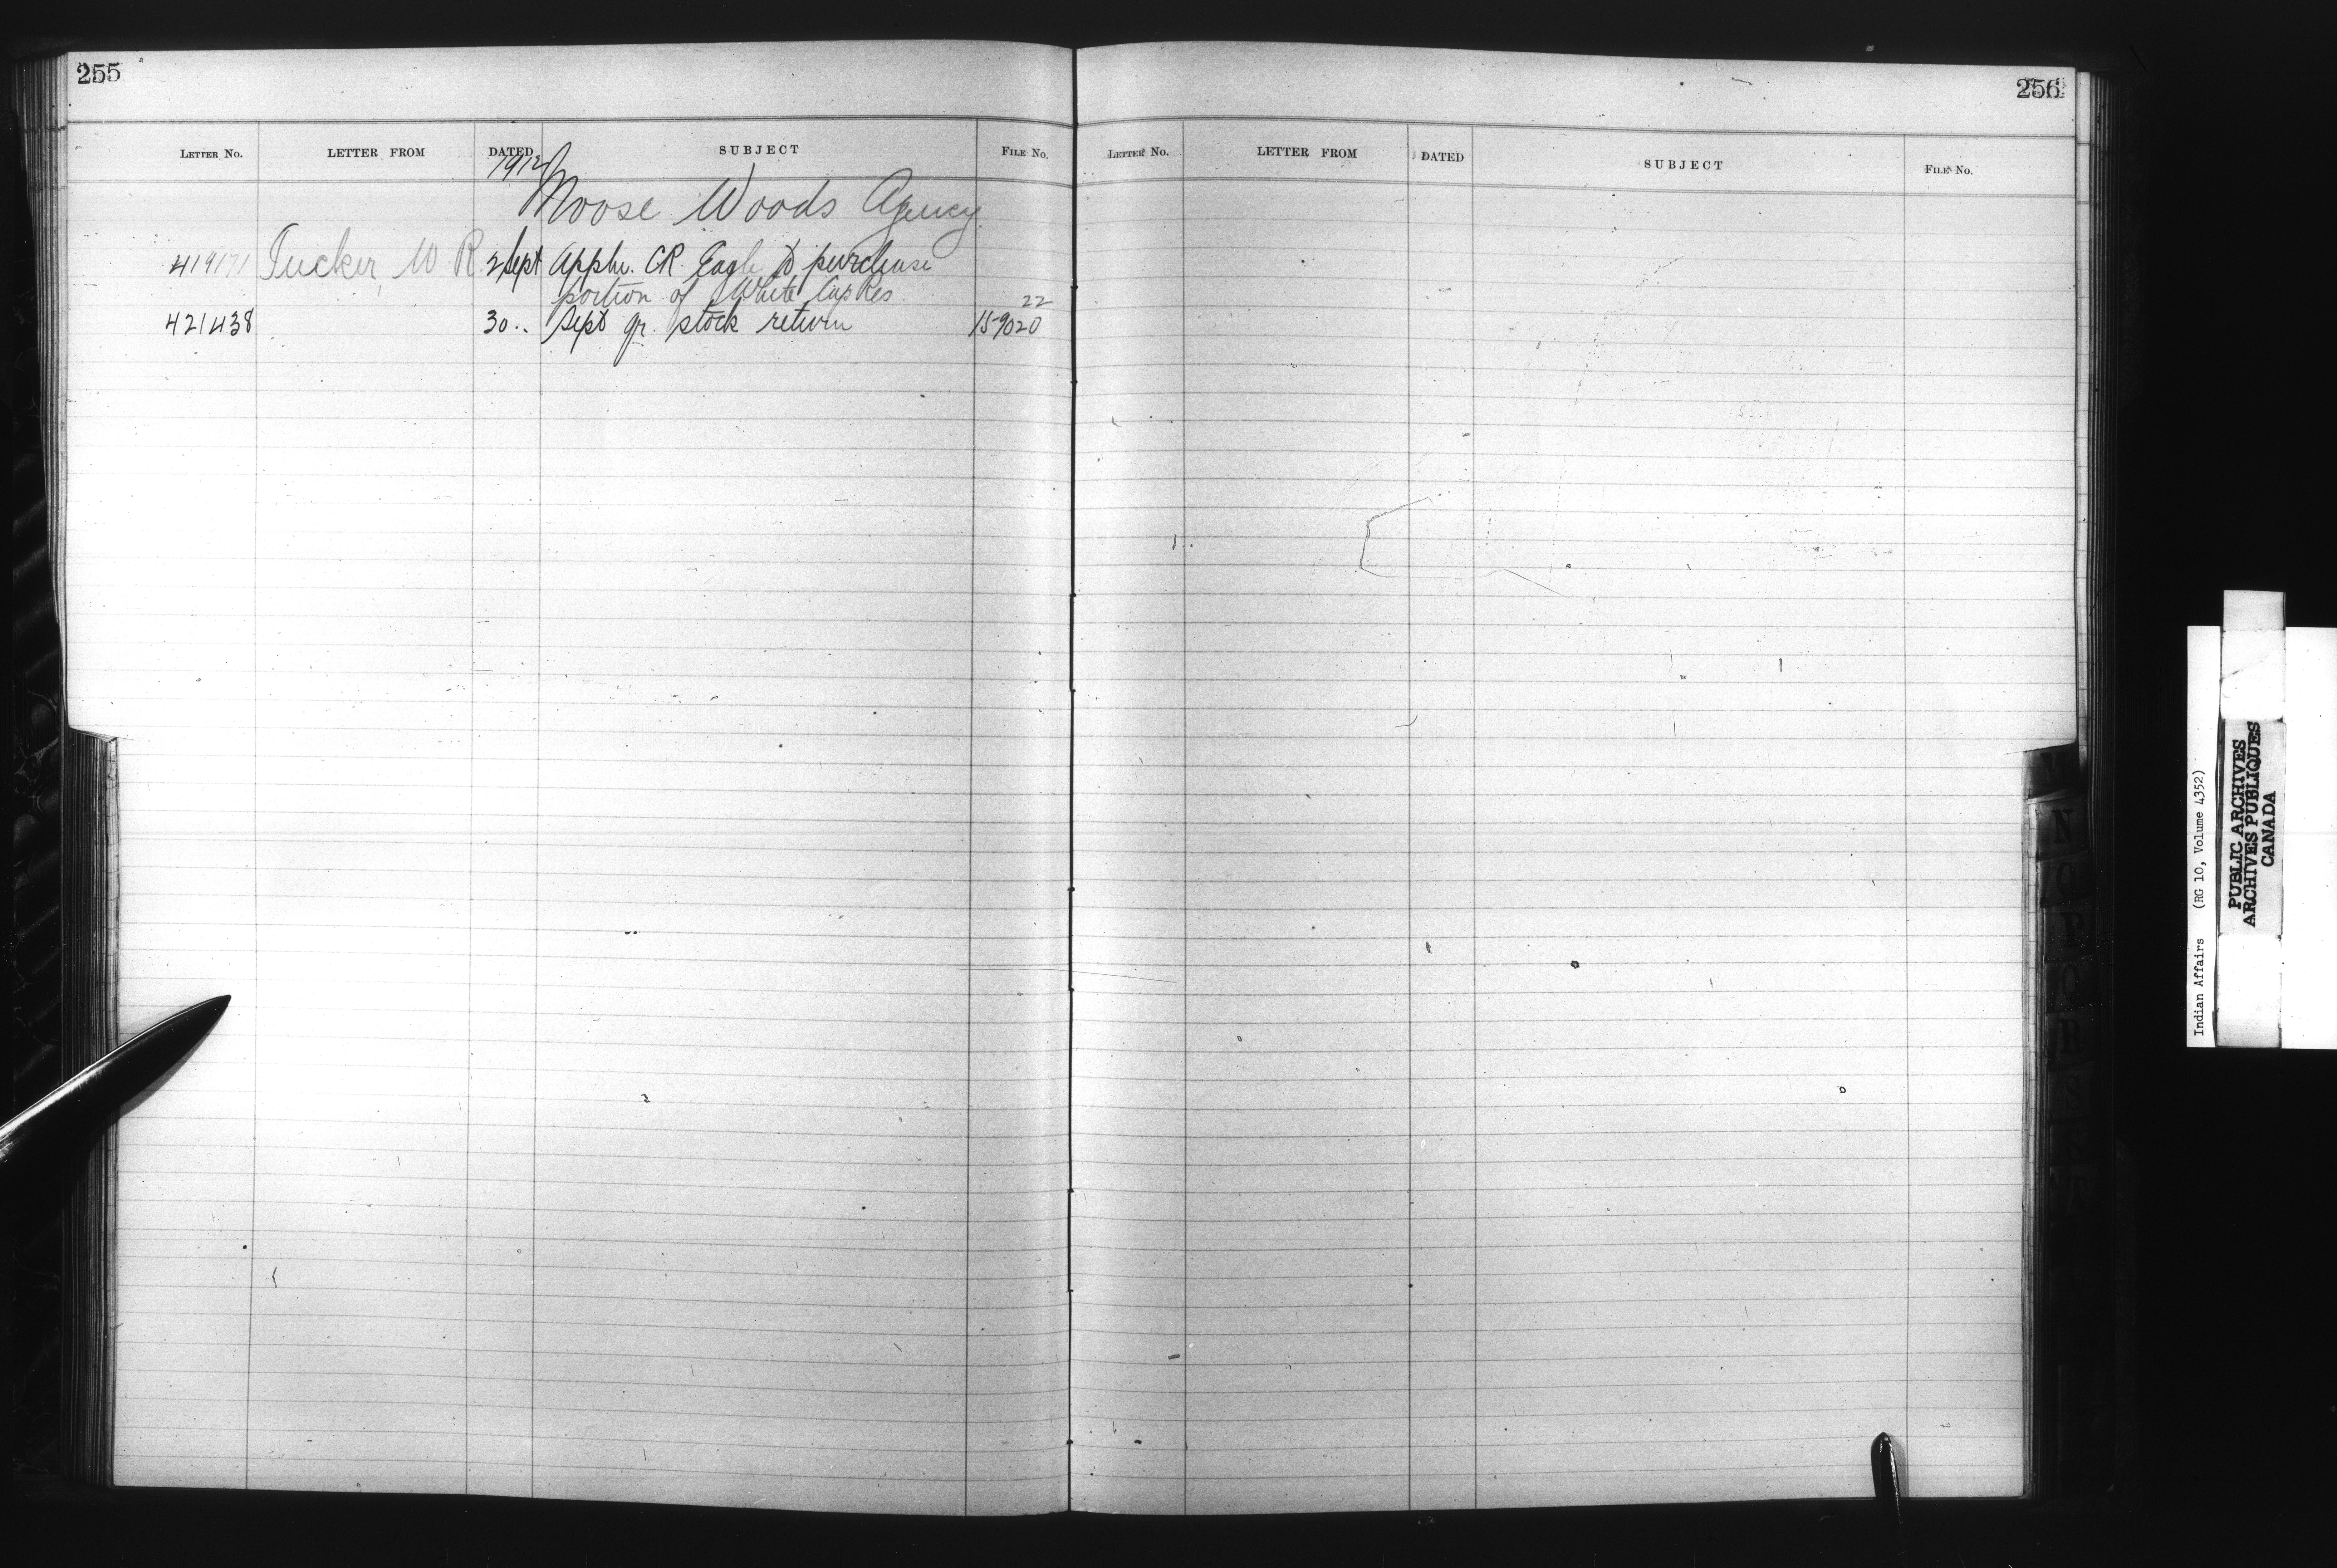 255
LETTER No. LETTER FROM DATED SUBJECT FILE No.
1912
Moose Woods Agency
419171 Tucker, W R 2 Sept Appln. CR. Eagle to purchase
portion of White Cap Res
22
421438 30 .. Sept qr. stock return 15-9020
256
LETTER No. LETTER FROM DATED SUBJECT FILE No.
N
O
P
Q
R
S
Indian Affairs (RG 10, Volume 4352)
PUBLIC ARCHIVES
ARCHIVES PUBLIQUES
CANADA